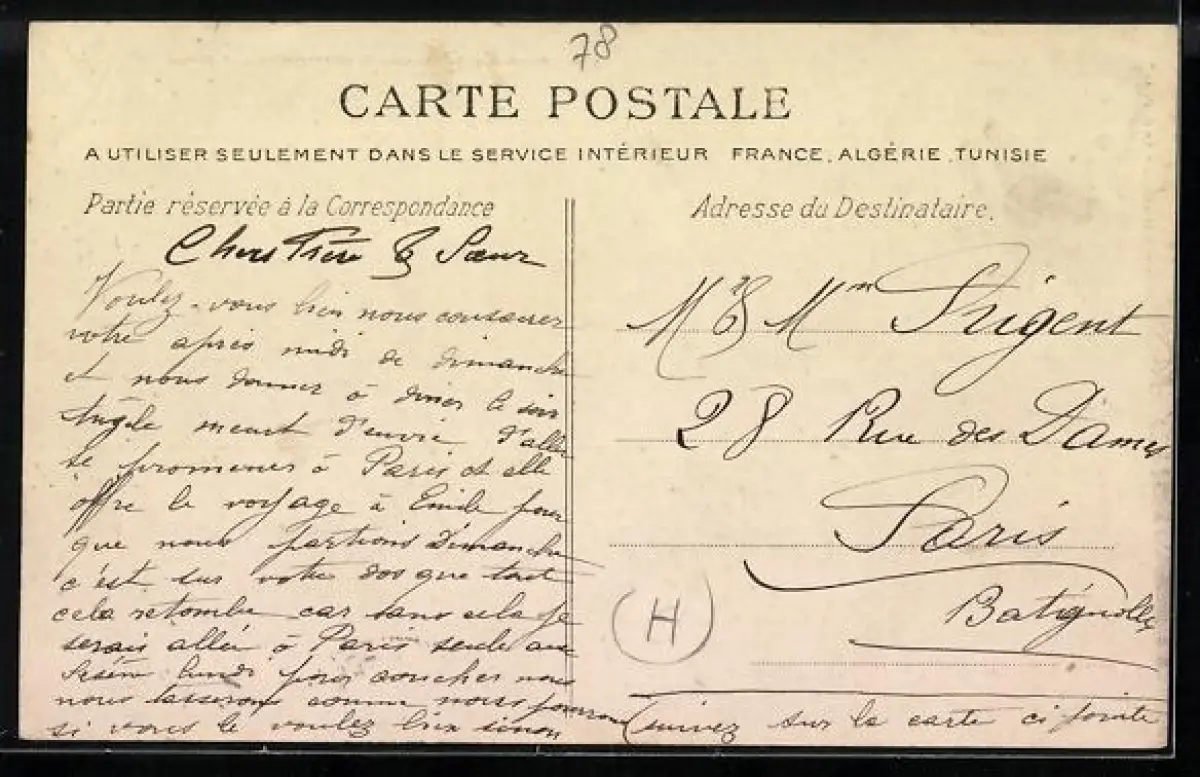 78
CARTE POSTALE
A UTILISER SEULEMENT DANS LE SERVICE INTÉRIEUR FRANCE, ALGÉRIE, TUNISIE
Partie réservée à la Correspondance
Chers Frère & Sœur
Voulez-vous bien nous consacrer
votre après midi de dimanche
et nous donner à diner le soir
Angèle meurt d'envie d'aller
se promener à Paris et elle
offre le voyage à Emile pour
que nous partions Dimanche
c'est sur votre dos que tout
cela retombe car sans cela je
serais allée à Paris seule
lundi pour coucher nous
nous tasserons comme nous pourrons
si vous le voulez bien sinon
(suivez sur la carte ci jointe
Adresse du Destinataire.
Mr & Mme Prigent
28 Rue des Dames
Paris
Batignolles
H